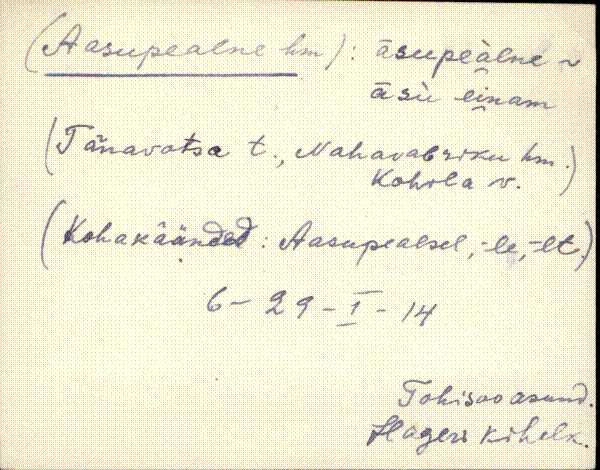 (Aasupealne hm): āsupeàlne ~
āsù einam
(Tänavotsa t., Nahavabriku hm.)
Kohila v.
(Kohakäänded: Aasupealsel, -le, -lt.)
6 - 29 - I - 14
Tohisoo asund.
Hageri kihelk.